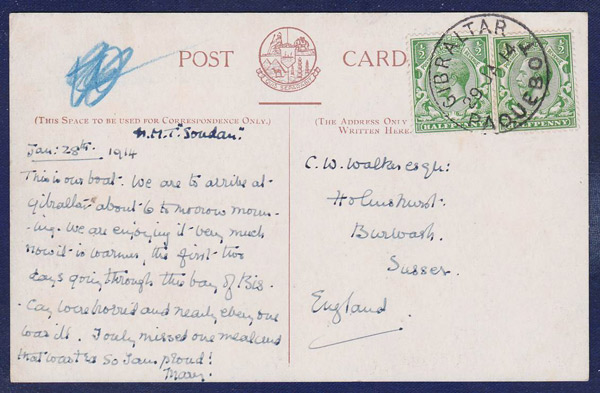 POST CARD
QUIS SEPARABIT
(THIS SPACE TO BE USED FOR CORRESPONDENCE ONLY.)
H.M.T. "Soudan".
Jan: 28th. 1914
This is our boat. We are to arrive at
Gibraltar about 6 to morrow morn-
-ing. We are enjoying it very much
now it is warmer, the first two
days going through the bay of Bis-
-cay were horrid and nearly every one
was ill. I only missed one meal and
that was tea so I am proud!
Mary.
(THE ADDRESS ONLY
WRITTEN HERE.
C. W. Walker esqr:
Holmshurst.
Burwash.
Sussex.
England.
½ ½
½ ½
HALFPENNY
HALFPENNY
GIBRALTAR
29 JA 14
PAQUEBOT